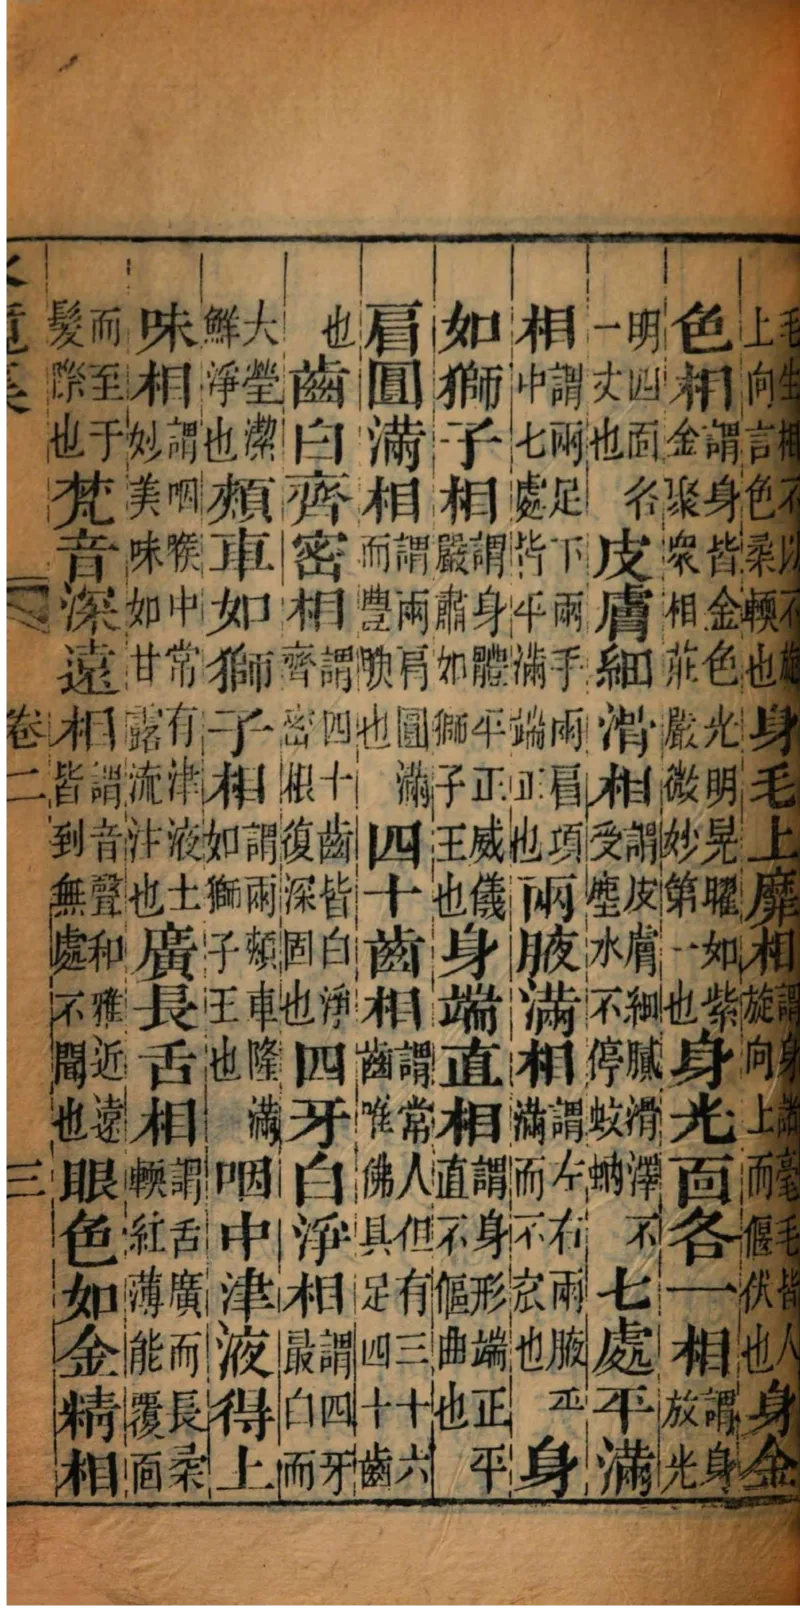 毛生相不以不旋上向言色柔輭也身毛上靡相謂身諸毫毛皆人旋向上而偃伏也身金
色相謂身皆金色光明晃曜如紫金聚衆相莊嚴微妙第一也身光面各一相謂身放光
明四面名一丈也皮膚細滑相謂皮膚細膩滑澤不受塵水不停蚊蚋七處平滿
相謂兩足下兩手兩肩項中七處皆平滿端正也兩腋滿相謂左右兩腋平滿而不窊也身
如獅子相謂身體平正威儀嚴肅如獅子王也身端直相謂身形端正平直不傴曲也
肩圓滿相謂兩肩圓滿而豐腴也四十齒相謂常人但有三十六齒唯佛具足四十齒
也齒白齊密相謂四十齒皆白淨齊密根復深固也四牙白淨相謂四牙最白而
大瑩潔鮮淨也頰車如獅子相謂兩頰車隆滿如獅子王也咽中津液得上
味相謂咽喉中常有津液上妙美味如甘露流注也廣長舌相謂舌廣而長柔輭紅薄能覆面
而至于髮際也梵音深遠相謂音聲和雅近遠皆到無處不聞也眼色如金精相
卷二 三